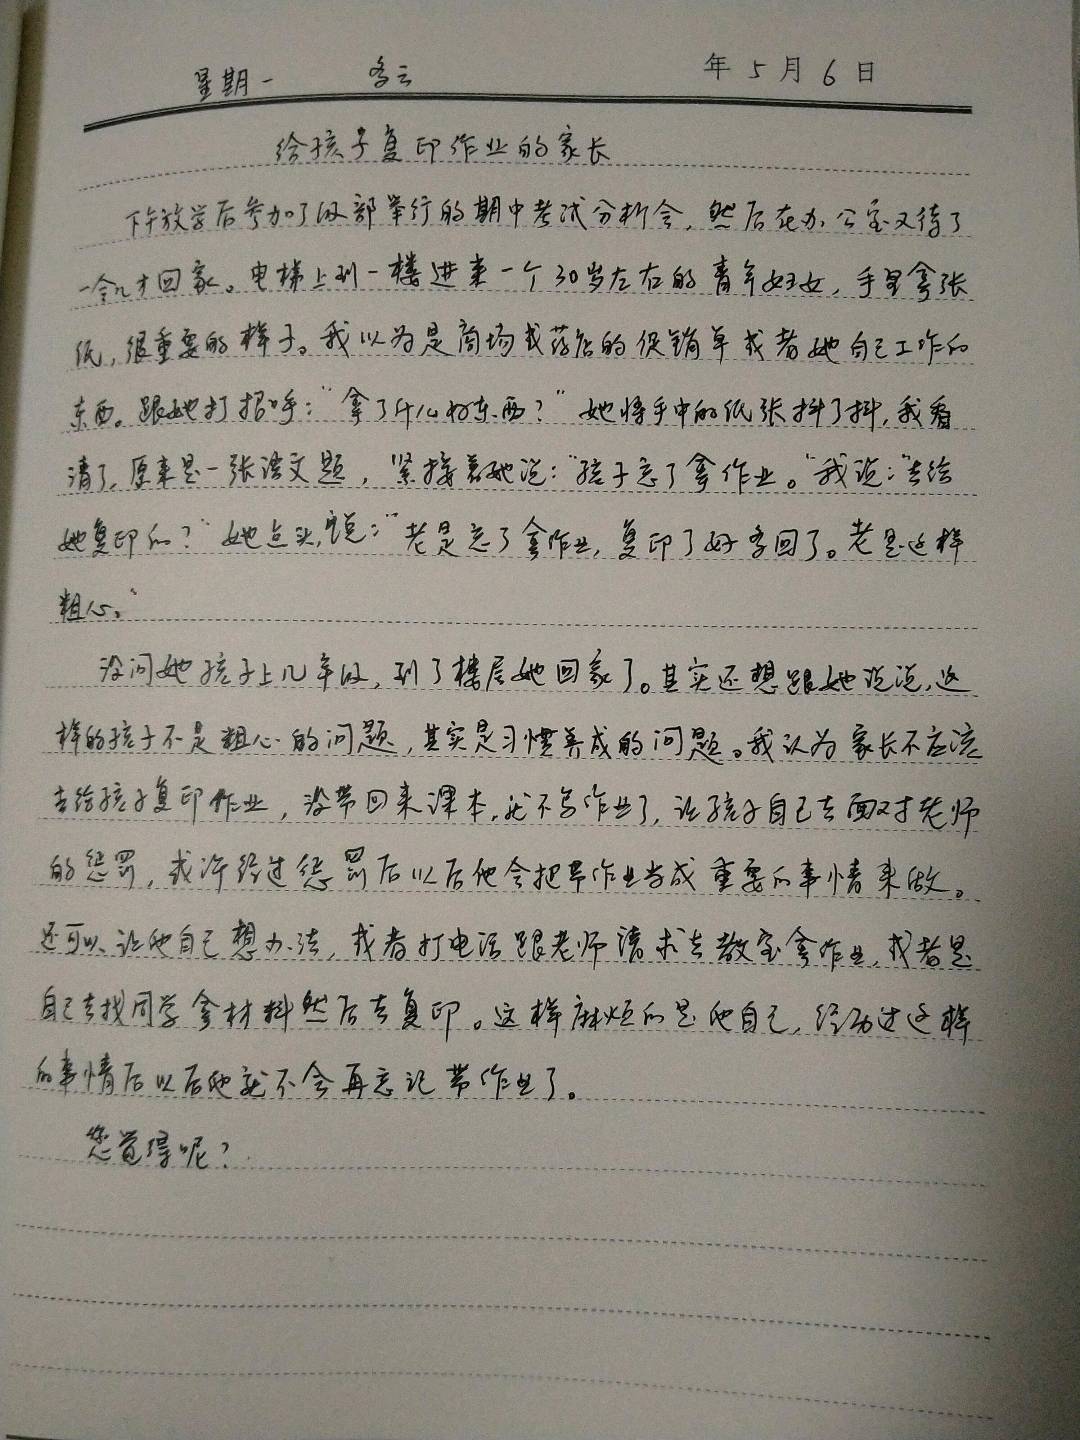 星期一 多云 年5月6日
给孩子复印作业的家长
下午放学后参加了级部举行的期中考试分析会，然后在办公室又待了
一会儿才回家。电梯上到一楼进来一个30岁左右的青年妇女，手里拿张
纸，很重要的样子。我以为是商场或药店的促销单或者她自己工作的
东西。跟她打招呼：“拿了什么好东西？”她将手中的纸张抖了抖，我看
清了，原来是一张语文题，紧接着她说：“孩子忘了拿作业。”我说：“去给
她复印的？”她点头，说：“老是忘了拿作业，复印了好多回了。老是这样
粗心。”
没问她孩子上几年级，到了楼层她回家了。其实还想跟她说说，这
样的孩子不是粗心的问题，其实是习惯养成的问题。我认为家长不应该
去给孩子复印作业，没带回来课本，就不写作业了，让孩子自己去面对老师
的惩罚，或许经过惩罚后以后他会把带作业当成重要的事情来做。
还可以让他自己想办法，或者打电话跟老师请求去教室拿作业，或者是
自己去找同学拿材料然后去复印。这样麻烦的是他自己，经历过这样
的事情后以后他就不会再忘记带作业了。
您觉得呢？